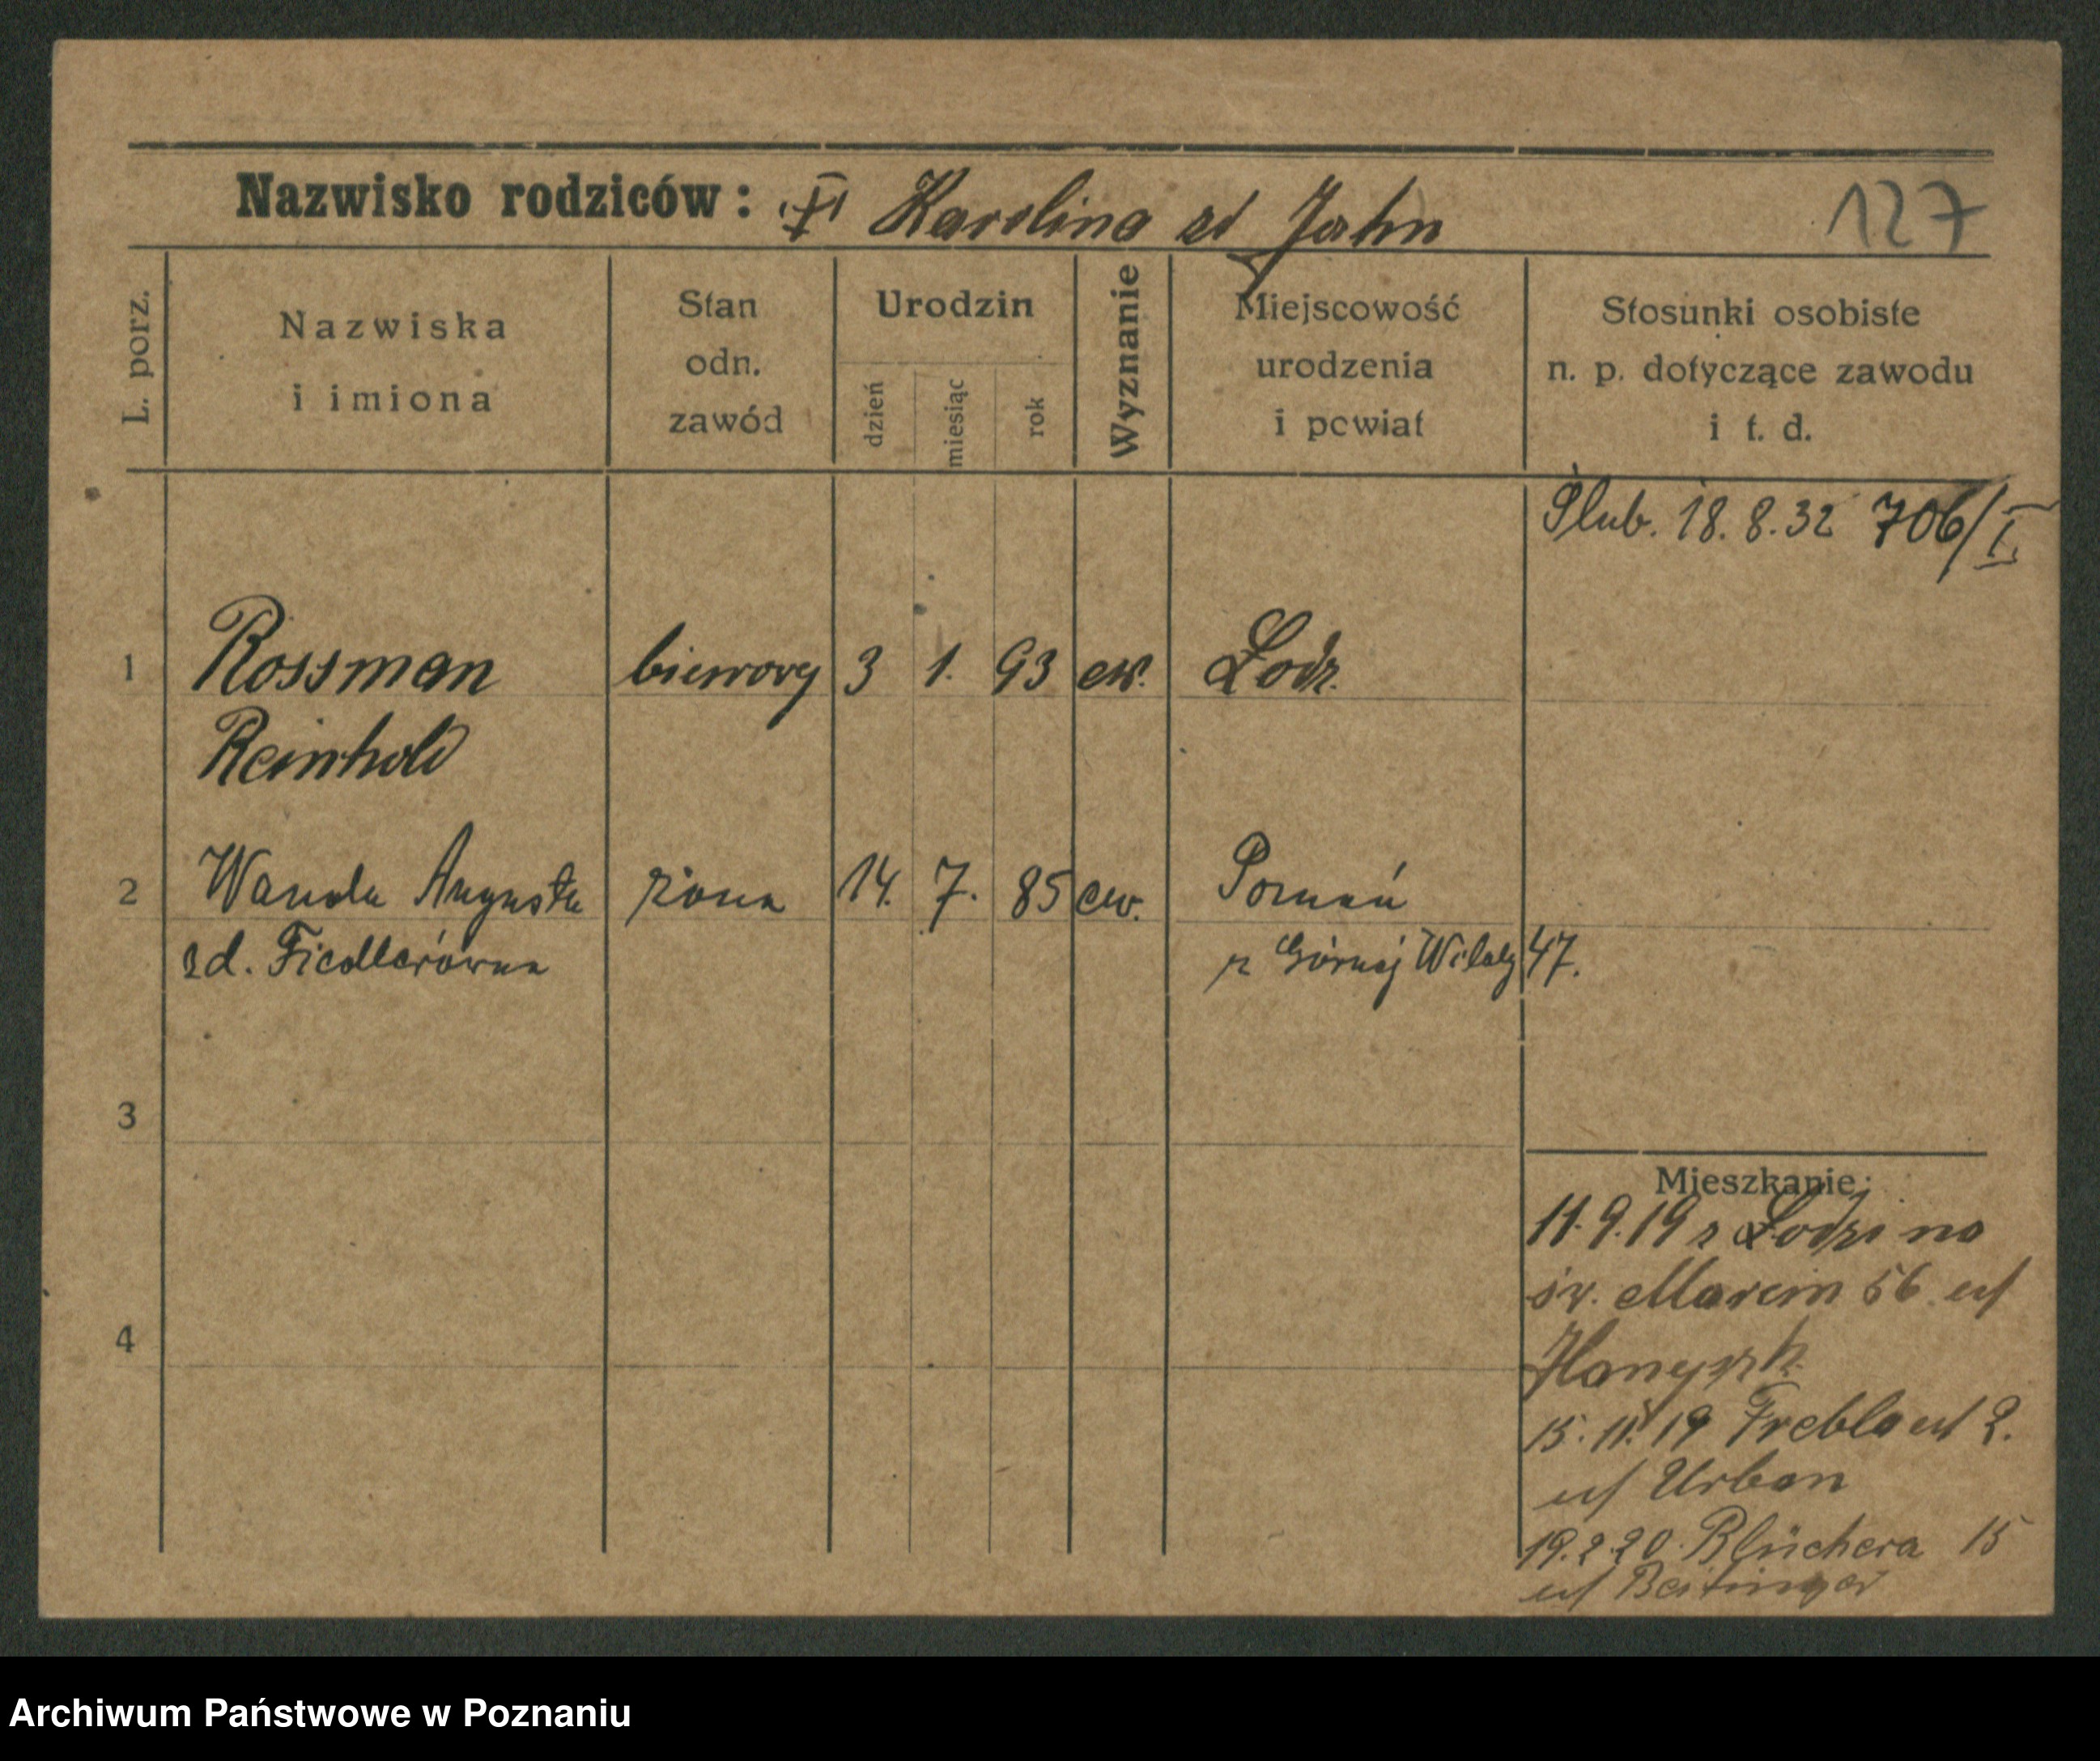 Nazwisko rodziców: Karolina zd Jahn 127
L. porz.
Nazwiska i imiona
Stan odn. zawód
Urodzin
dzień miesiąc rok
Wyznanie
Miejscowość urodzenia i powiat
Stosunki osobiste n. p. dotyczące zawodu i t. d.
Ślub. 18.8.32 706/I.
1 Rossman biurowy 3 1. 93 ew. Łodz.
Reinhold
2 Wanda Augusta żona 14. 7. 85 ew. Poznań
zd. Fiedlerówna z Górnej Wildy 47.
3
4
Mieszkanie:
11.9.19 z Łodzi na
św. Marcin 56
15.11.19 Frebla 2.
Urban
19.2.20. Blüchera 15
Archiwum Państwowe w Poznaniu